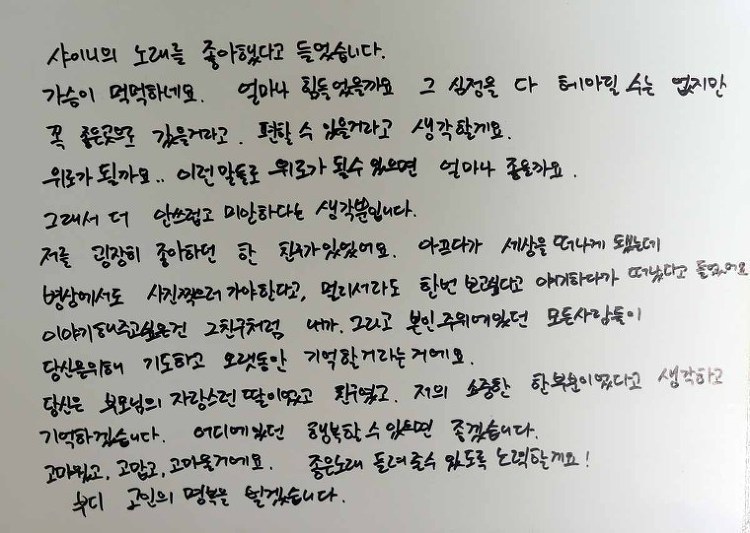 샤이니의 노래를 좋아했다고 들었습니다.
가슴이 먹먹하네요. 얼마나 힘들었을까요 그 심정을 다 헤아릴 수는 없지만
꼭 좋은곳으로 갔을거라고. 편할 수 있을거라고 생각할게요.
위로가 될까요.. 이런 말들로 위로가 될수 있으면 얼마나 좋을까요.
그래서 더 안쓰럽고 미안하다는 생각뿐입니다.
저를 굉장히 좋아하던 한 친구가 있었어요. 아프다가 세상을 떠나게 됐는데
병상에서도 사진찍으러 가야한다고, 멀리서라도 한번 보고싶다고 얘기하다가 떠났다고 들었어요
이야기해주고싶은건 그친구처럼 내가. 그리고 본인주위에있던 모든사람들이
당신을위해 기도하고 오랫동안 기억할거라는거에요.
당신은 부모님의 자랑스런 딸이였고 친구였고. 저의 소중한 한부분이였다고 생각하고
기억하겠습니다. 어디에있던 행복할 수 있으면 좋겠습니다.
고마웠고, 고맙고, 고마울거에요. 좋은노래 들려줄수 있도록 노력할게요!
부디 고인의 명복을 빌겠습니다.